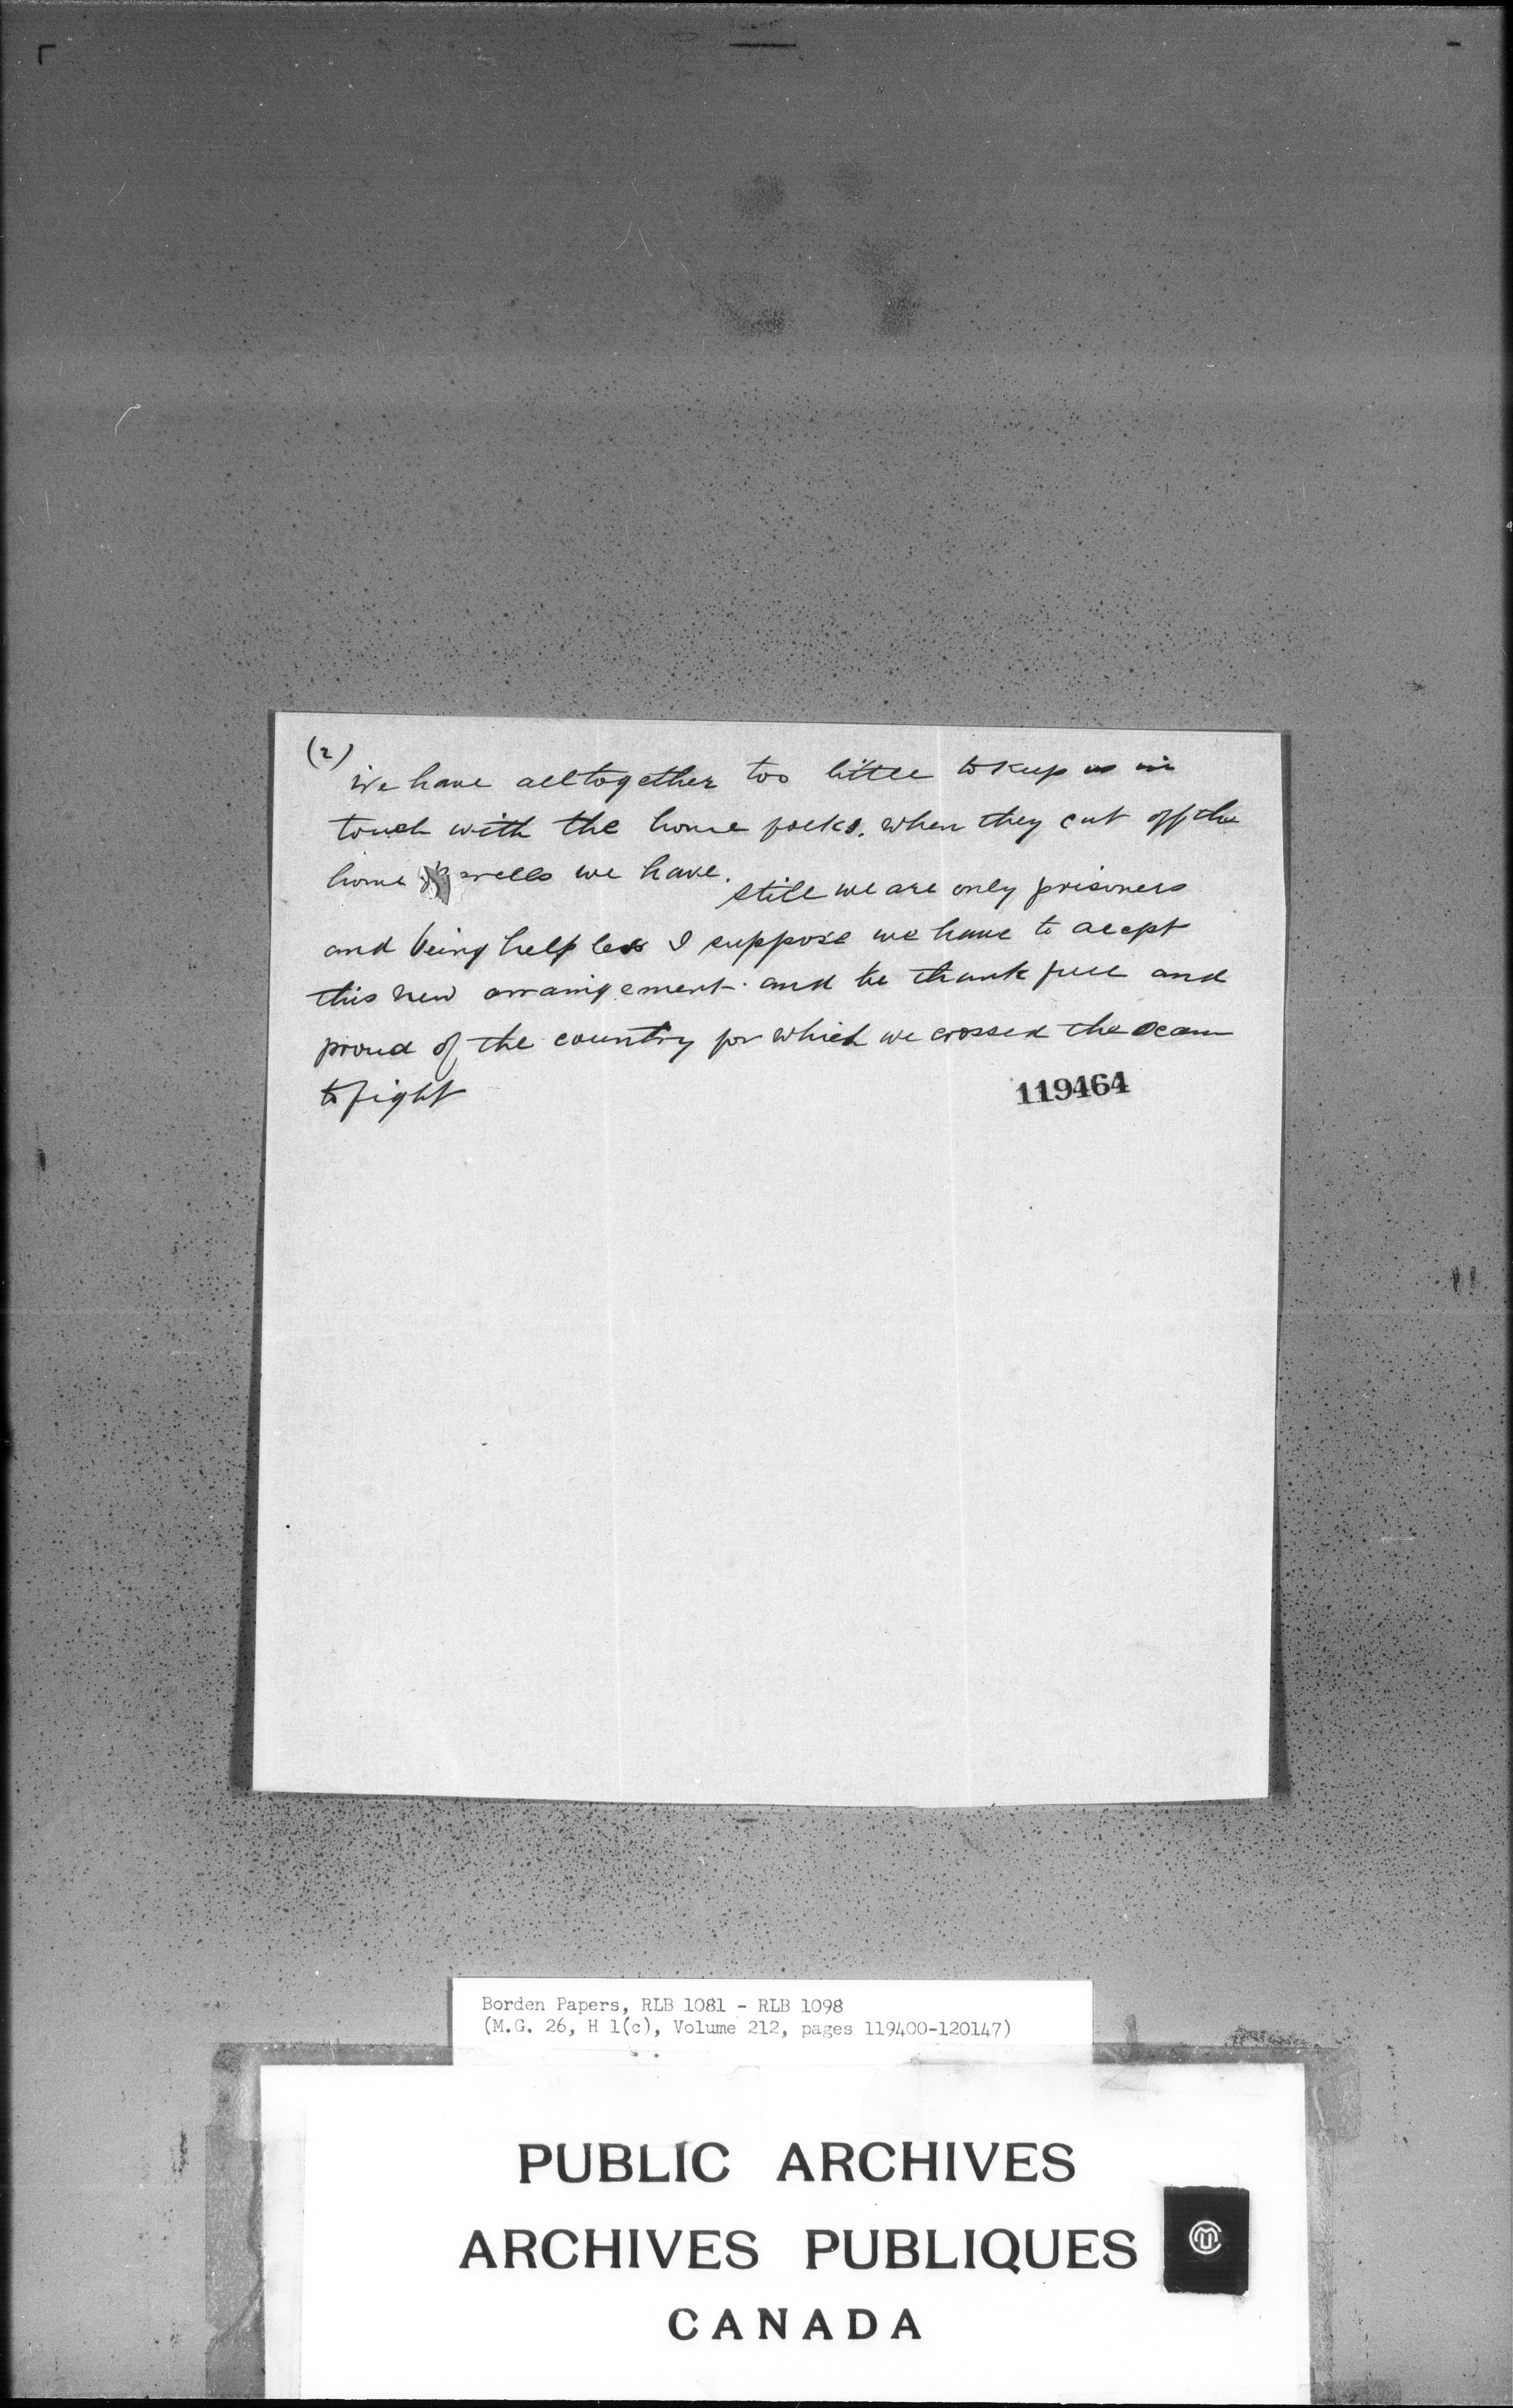 (2)
We have alltogether too little to keep us in
touch with the home folks. when they cut off the
home smells we have. still we are only prisoners
and being help less I suppose we have to acept
this new arraingement. and be thank full and
proud of the country for which we crossed the ocean
to fight
119464
Borden Papers, RLB 1081 - RLB 1098
(M.G. 26, H 1(c), Volume 212, pages 119400-120147)
PUBLIC ARCHIVES
ARCHIVES PUBLIQUES
CANADA